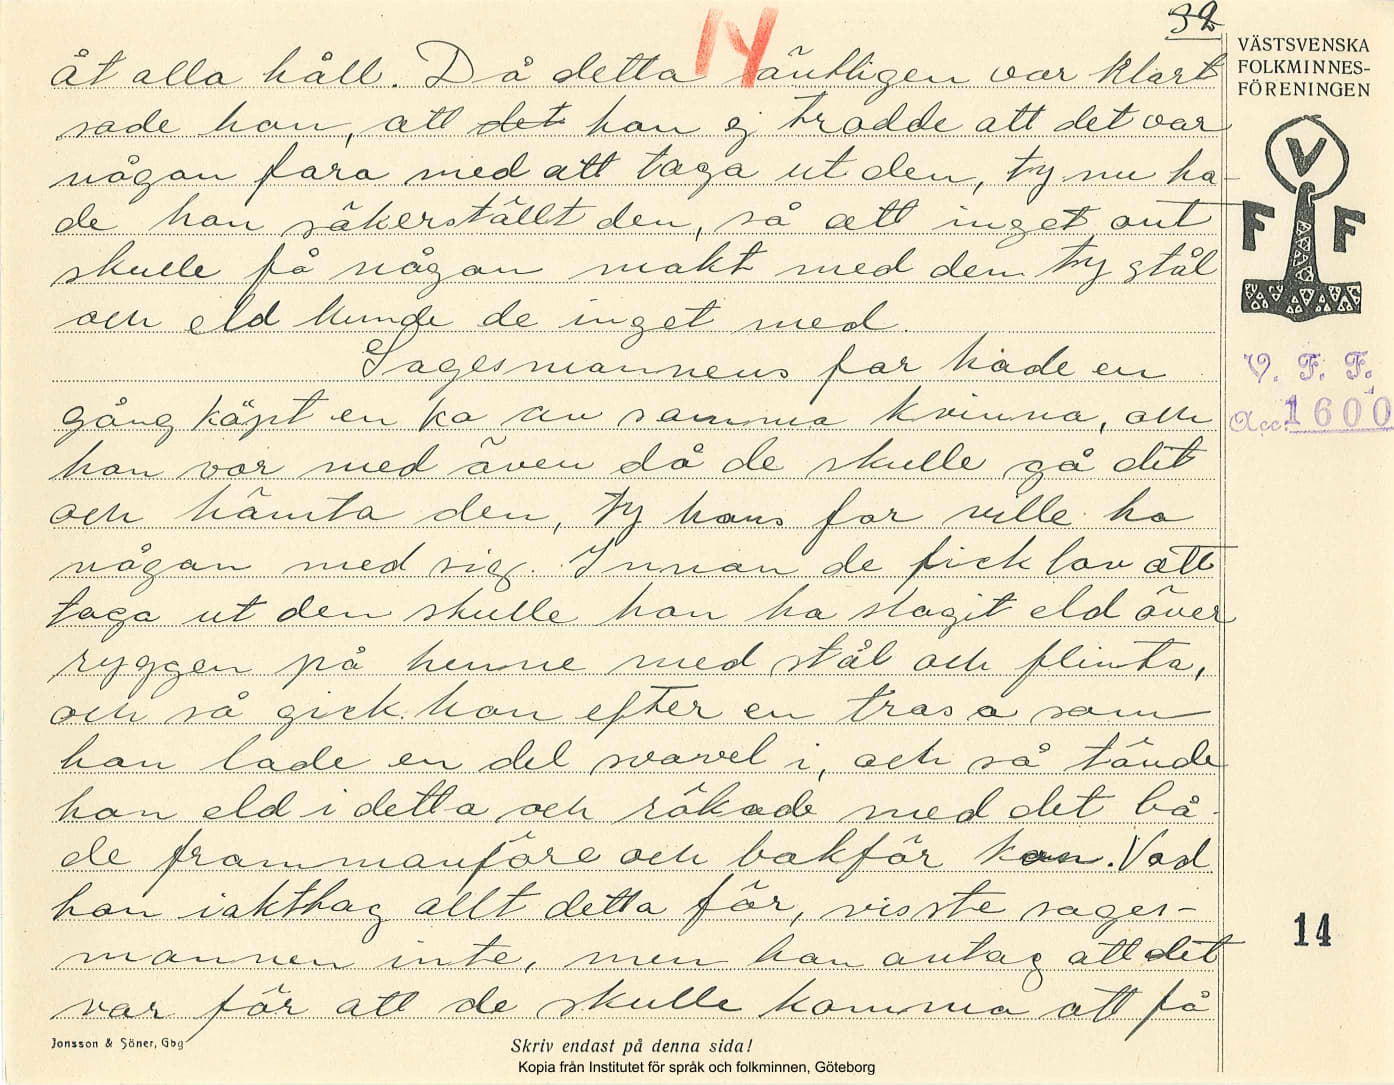 32
14
åt alla håll. Då detta äntligen var klart
sade han, att det han ej trodde att det var
någon fara med att taga ut den, ty nu ha-
de han säkerställt den, så att inget ont
skulle få någon makt med den ty stål
och eld kunde de inget med.
Sagesmannens far hade en
gång köpt en ko av samma kvinna, och
han var med även då de skulle gå dit
och hämta den, ty hans far ville ha
någon med sig. Innan de fick lov att
taga ut den skulle hon ha slagit eld över
ryggen på henne med stål och flinta,
och så gick hon efter en trasa som
hon lade en del svavel i, och så tände
hon eld i detta och rökade med det bå-
de frammanföre och bakför kon. Vad
hon iakttog allt detta för, visste sages-
mannen inte, men han antog att det
var för att de skulle komma att få
VÄSTSVENSKA
FOLKMINNES-
FÖRENINGEN
V
F F
V. F. F.
Acc. 1600
14
Jonsson & Söner, Gbg
Skriv endast på denna sida!
Kopia från Institutet för språk och folkminnen, Göteborg